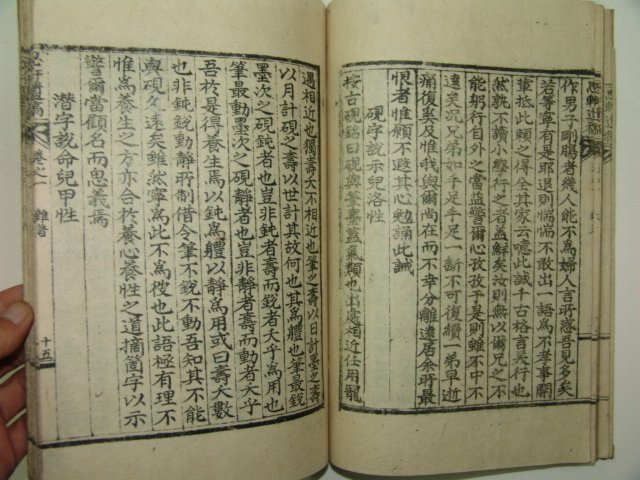 作男子剛腸者幾人能不爲婦人言所惑吾見多矣
若等寧有是耶退則惴惴不敢出一語爲不孝事開
輩抵此頼之得全其家云噫此誠千古格言矣行也
然孰不讀小學行之者盖鮮矣汝則無以爾兄之不
能躬行自外之當益警爾心孜孜于是則雖不中不
遠矣況兄弟如手足手足一斷不可復續一弟早逝
痛復奚及惟我與爾尚在而不幸分離遠居余所最
恨者惟願不避其心勉誦此誠
硯字說示兒洛性
按古硯銘曰硯與筆墨蓋氣類也出處相近任用寵
遇相近也獨壽夭不相近也筆之壽以日計墨之壽
以月計硯之壽以世計其故何也其爲體也筆最銳
墨次之硯鈍者也豈非鈍者壽而銳者夭乎其爲用也
筆最動墨次之硯靜者也豈非靜者壽而動者夭乎
吾於是得養生焉以鈍爲體以靜爲用或曰壽夭數
也非鈍銳動靜所制借令筆不銳不動吾知其不能
與硯久遠矣雖然寧爲此不爲彼也此語極有理不
惟爲養生之方亦合於養心養性之道摘箇字以示
警爾當顧名而思義焉
潛字說命兒甲性
卷之一
雜著
十五